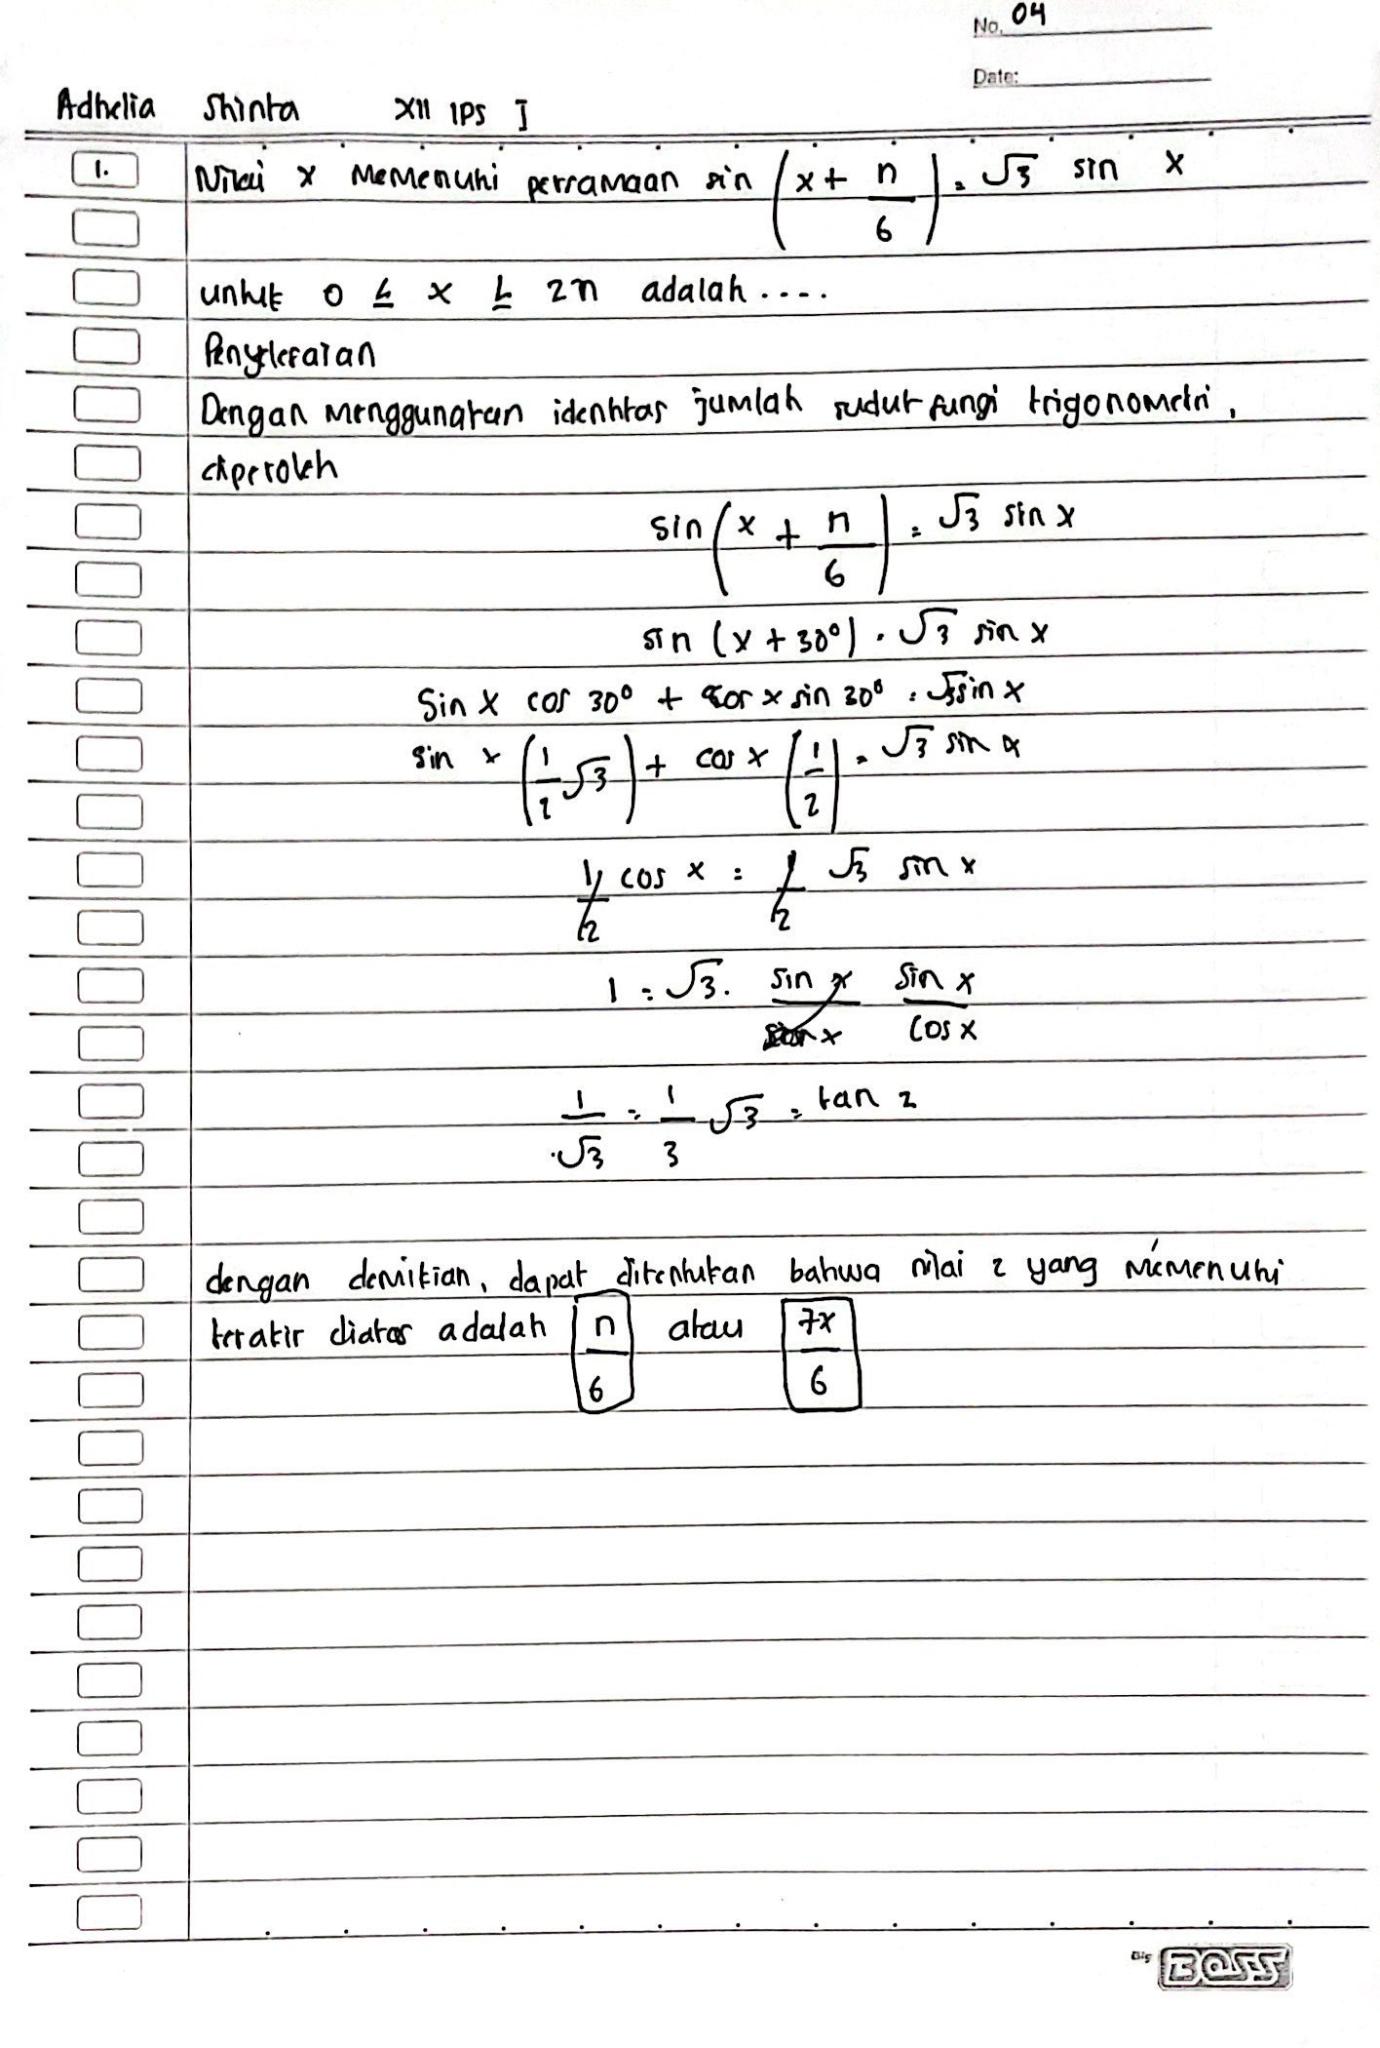 No. 04
Date:
Adhelia Shinta XII IPS I
1. Nilai x memenuhi persamaan sin (x + n/6) = √3 sin x
untuk 0 ≤ x ≤ 2n adalah ....
Penyelesaian
Dengan menggunakan identitas jumlah sudut fungi trigonometri,
diperoleh
sin (x + n/6) = √3 sin x
sin (x + 30°) = √3 sin x
Sin x cos 30° + cos x sin 30° = √3 sin x
sin x (1/2 √3) + cos x (1/2) = √3 sin x
1/2 cos x = 1/2 √3 sin x
1 = √3. sin x / cos x
1/√3 = 1/3 √3 = tan 2
dengan demikian, dapat ditentukan bahwa nilai 2 yang memenuhi
terakir diatas adalah n/6 atau 7x/6
Big BOSS